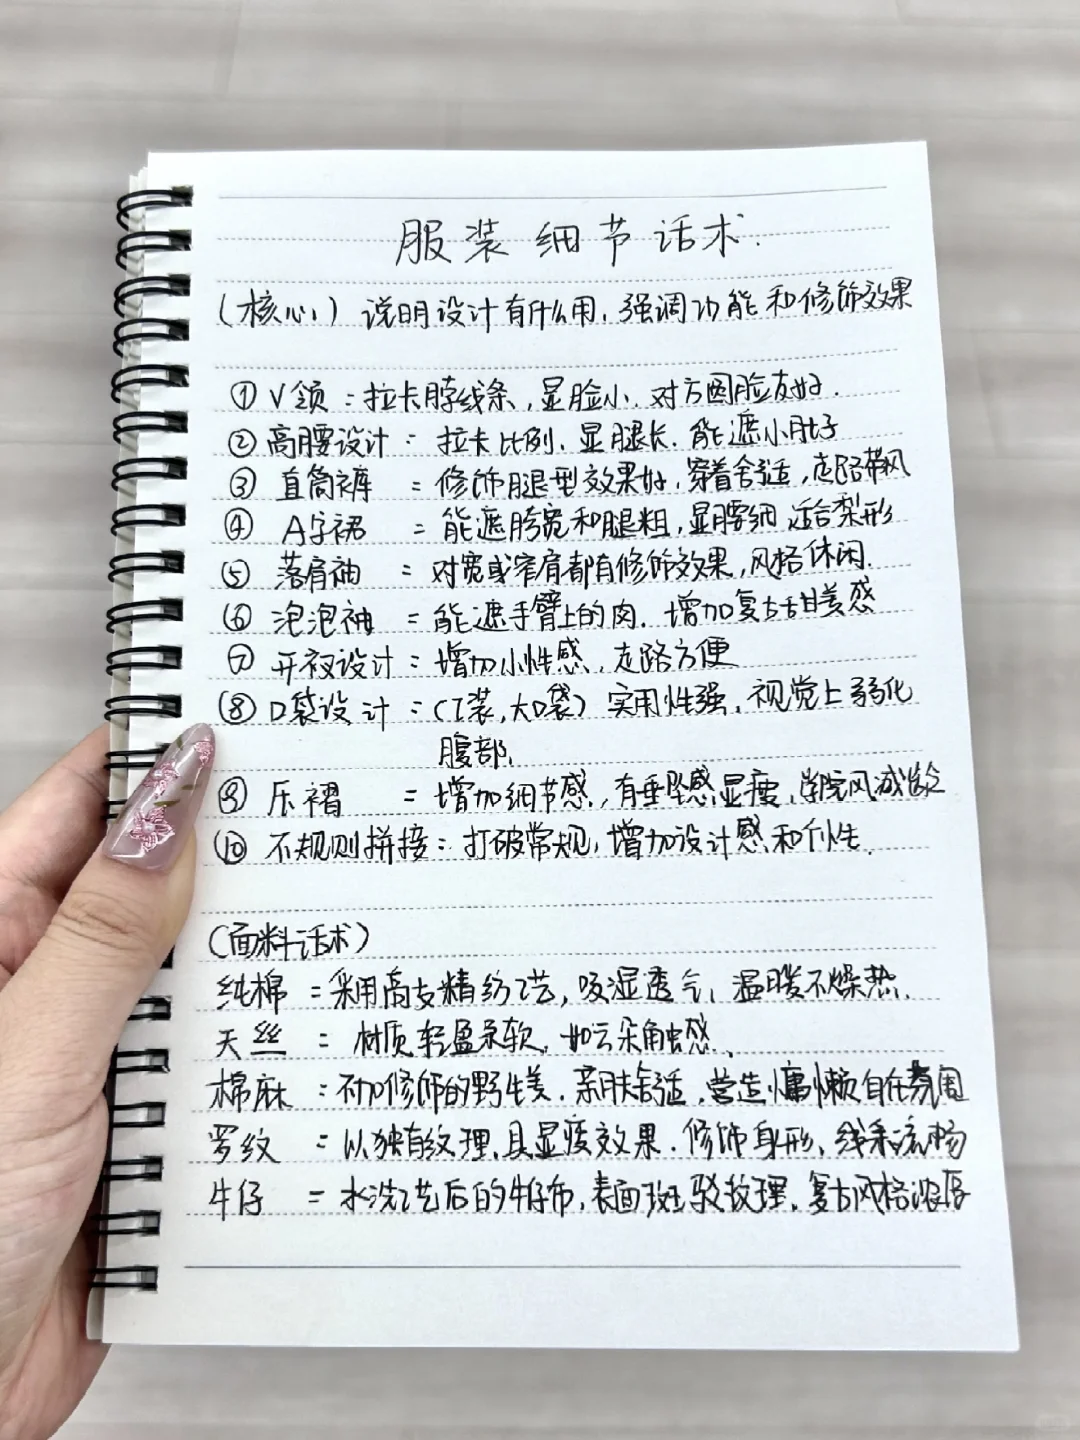 服装细节话术.
(核心) 说明设计有什么用, 强调功能和修饰效果
① V领 : 拉长脖线条, 显脸小. 对方圆脸友好.
② 高腰设计 : 拉长比例. 显腿长. 能遮小肚子
③ 直筒裤 = 修饰腿型效果好, 穿着舒适, 走路带风
④ A字裙 = 能遮胯宽和腿粗, 显腰细 适合梨形
⑤ 落肩袖 = 对宽或窄肩都有修饰效果, 风格休闲.
⑥ 泡泡袖 = 能遮手臂上的肉. 增加复古甜美感
⑦ 开衩设计 : 增加小性感, 走路方便
⑧ 口袋设计 : (工装, 大口袋) 实用性强, 视觉上弱化
腹部.
⑨ 压褶 = 增加细节感, 有垂坠感显瘦, 学院风减龄
⑩ 不规则拼接 : 打破常规, 增加设计感和个性.
(面料话术)
纯棉 = 采用高支精纺工艺, 吸湿透气, 温暖不燥热.
天丝 : 材质轻盈柔软, 如云朵触感.
棉麻 : 不加修饰的野生美. 亲肤舒适, 营造慵懒自在氛围
罗纹 = 以独有纹理, 具显瘦效果. 修饰身形, 线条流畅
牛仔 = 水洗工艺后的牛仔布, 表面斑驳纹理, 复古风格浓厚